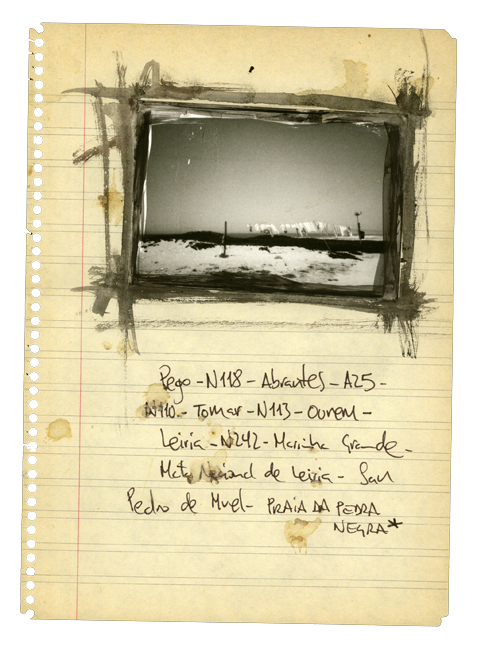 Pego - N118 - Abrantes - A25 -
N110 - Tomar - N113 - Ourem -
Leiria - N242 - Marinha Grande -
Mata Nacional de Leiria - San
Pedro de Muel - PRAIA DA PEDRA
NEGRA*